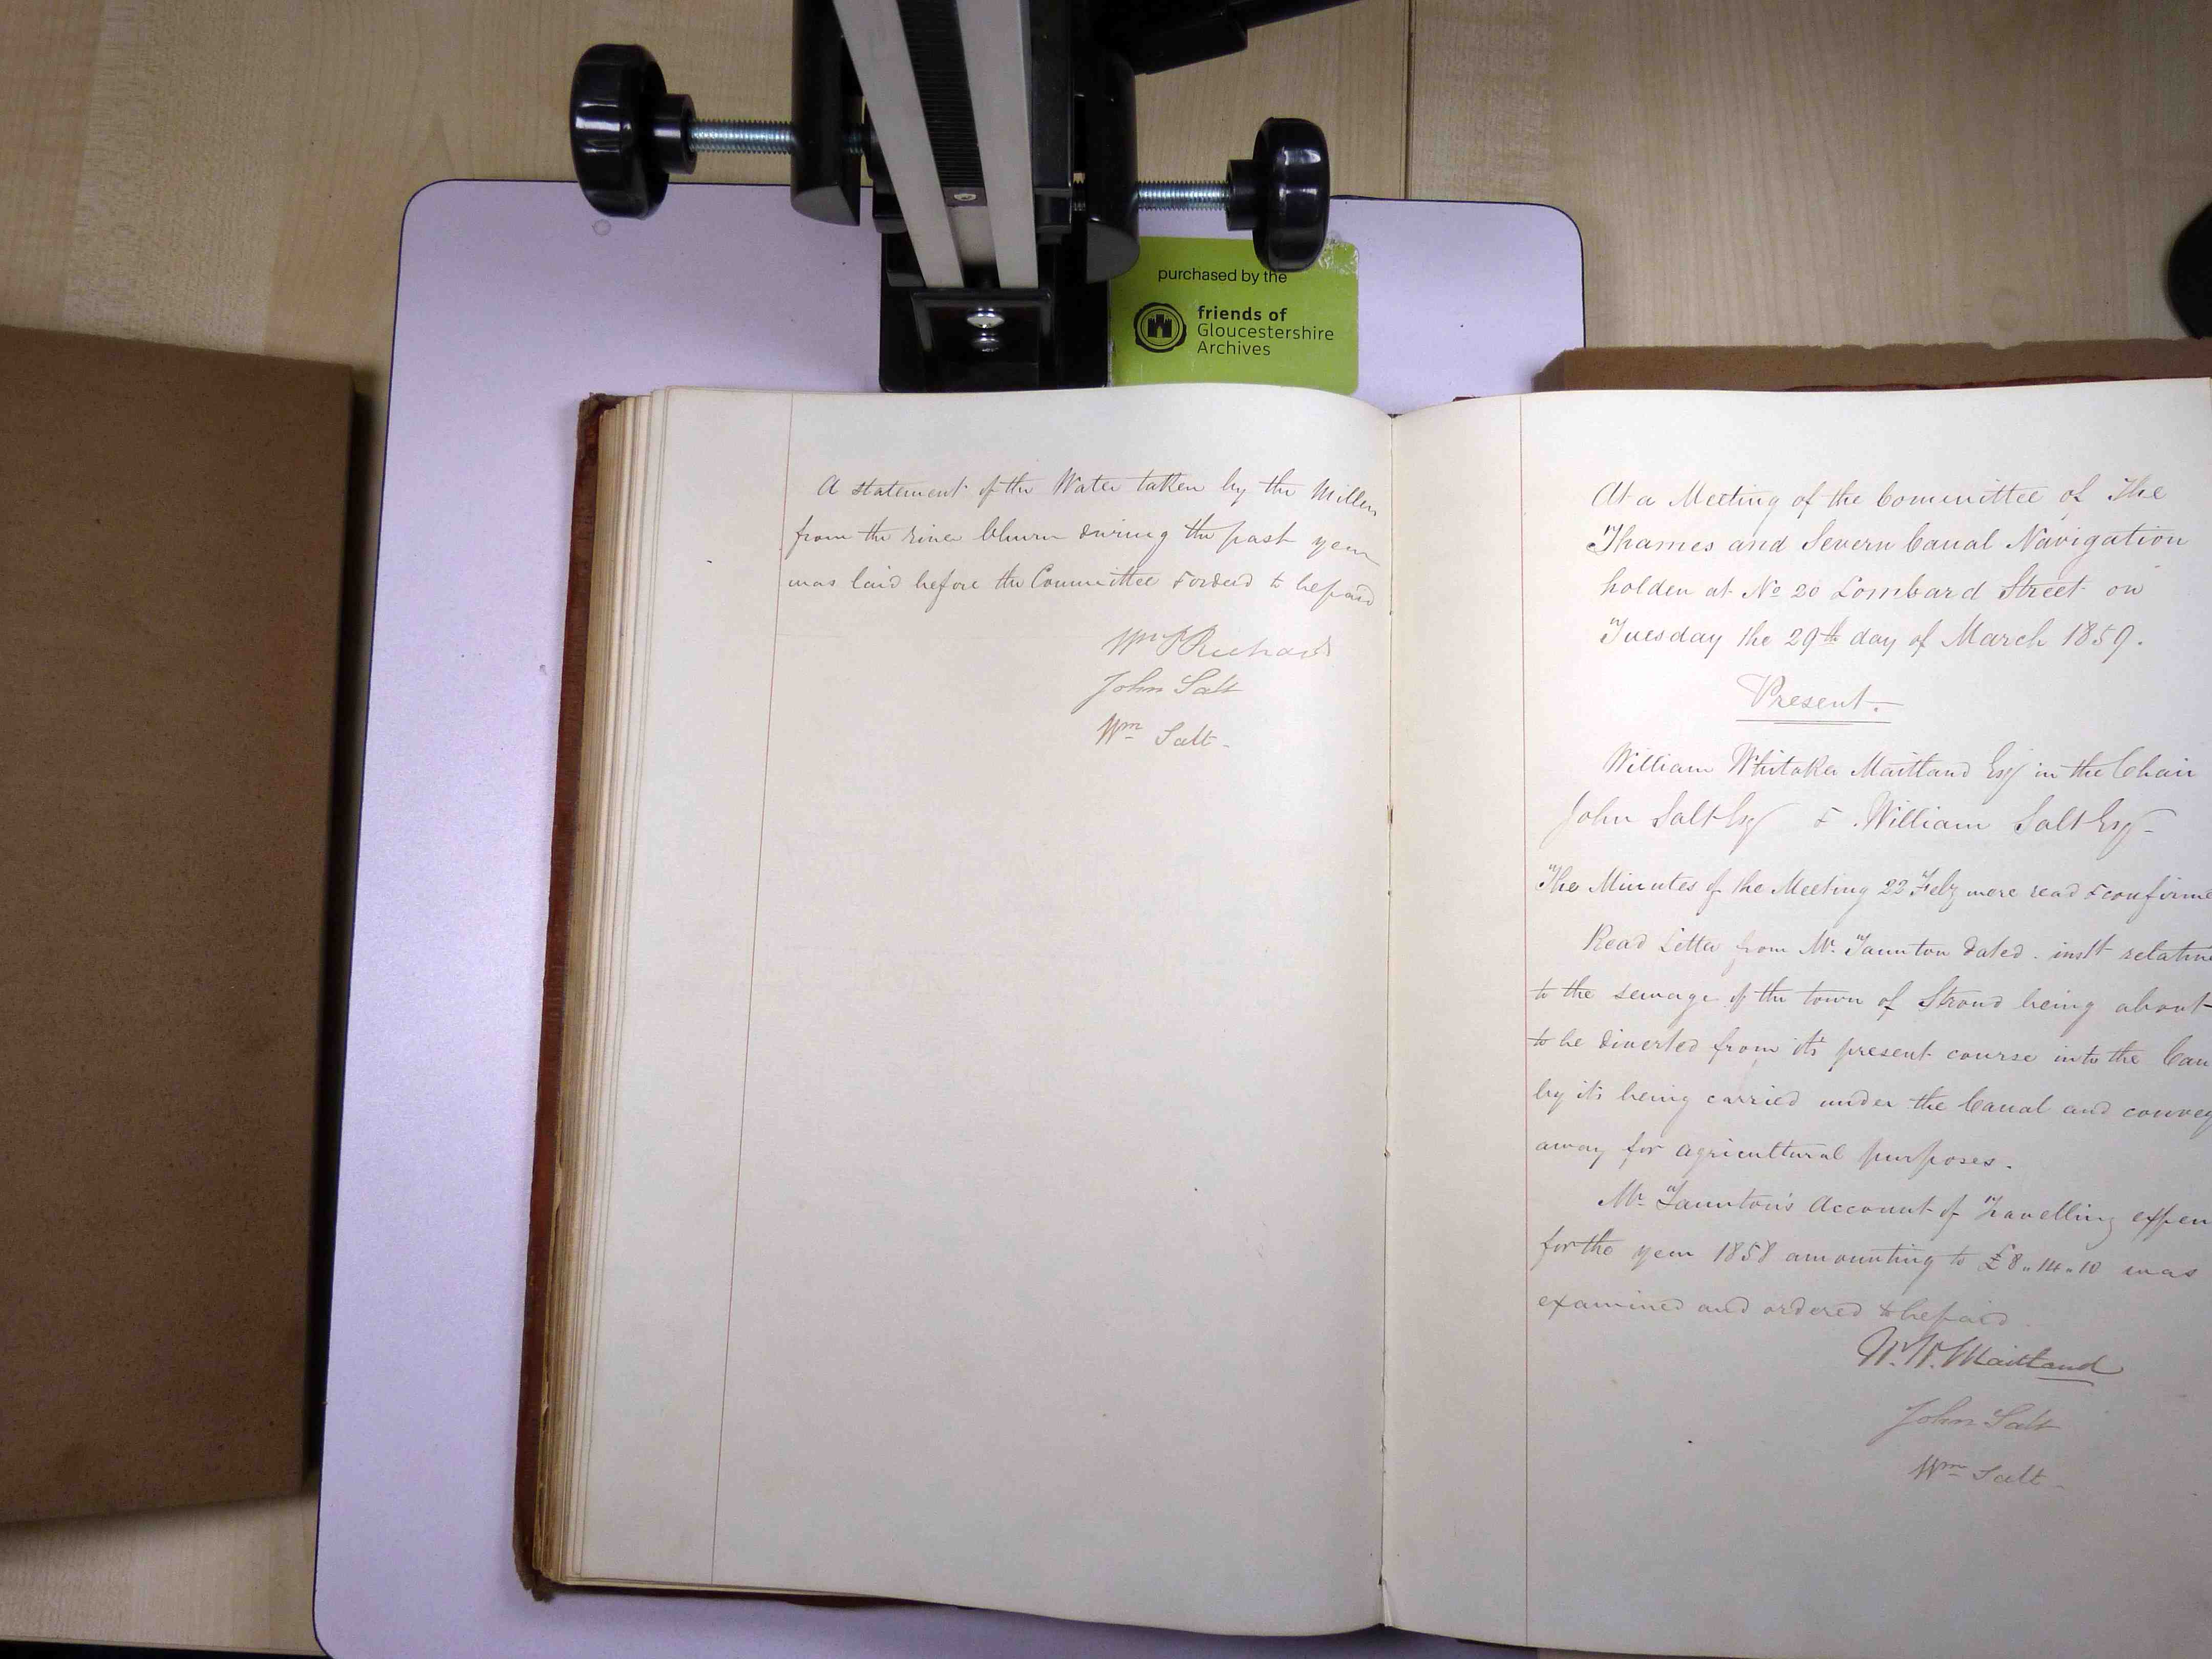 purchased by the
friends of
Gloucestershire
Archives
A statement of the Water taken by the Millers
from the river Churn during the past year
was laid before the Committee & ordered to be paid
Wm P Richards
John Salt
Wm Salt -
At a Meeting of the Committee of The
Thames and Severn Canal Navigation
holden at No 20 Lombard Street on
Tuesday the 29th day of March 1859.
Present.
William Whitaker Maitland Esq in the Chair
John Salt Esq & William Salt Esq -
The Minutes of the Meeting 22 Feby were read & confirme
Read Letter from Mr Taunton dated . inst relative
to the sewage of the town of Stroud being about
to be diverted from its present course into the Can
by its being carried under the Canal and convey
away for agricultural purposes.
Mr Taunton's Account of Travelling expen
for the year 1858 amounting to £8.14.10 was
examined and ordered to be paid
W. W. Maitland
John Salt
Wm Salt -